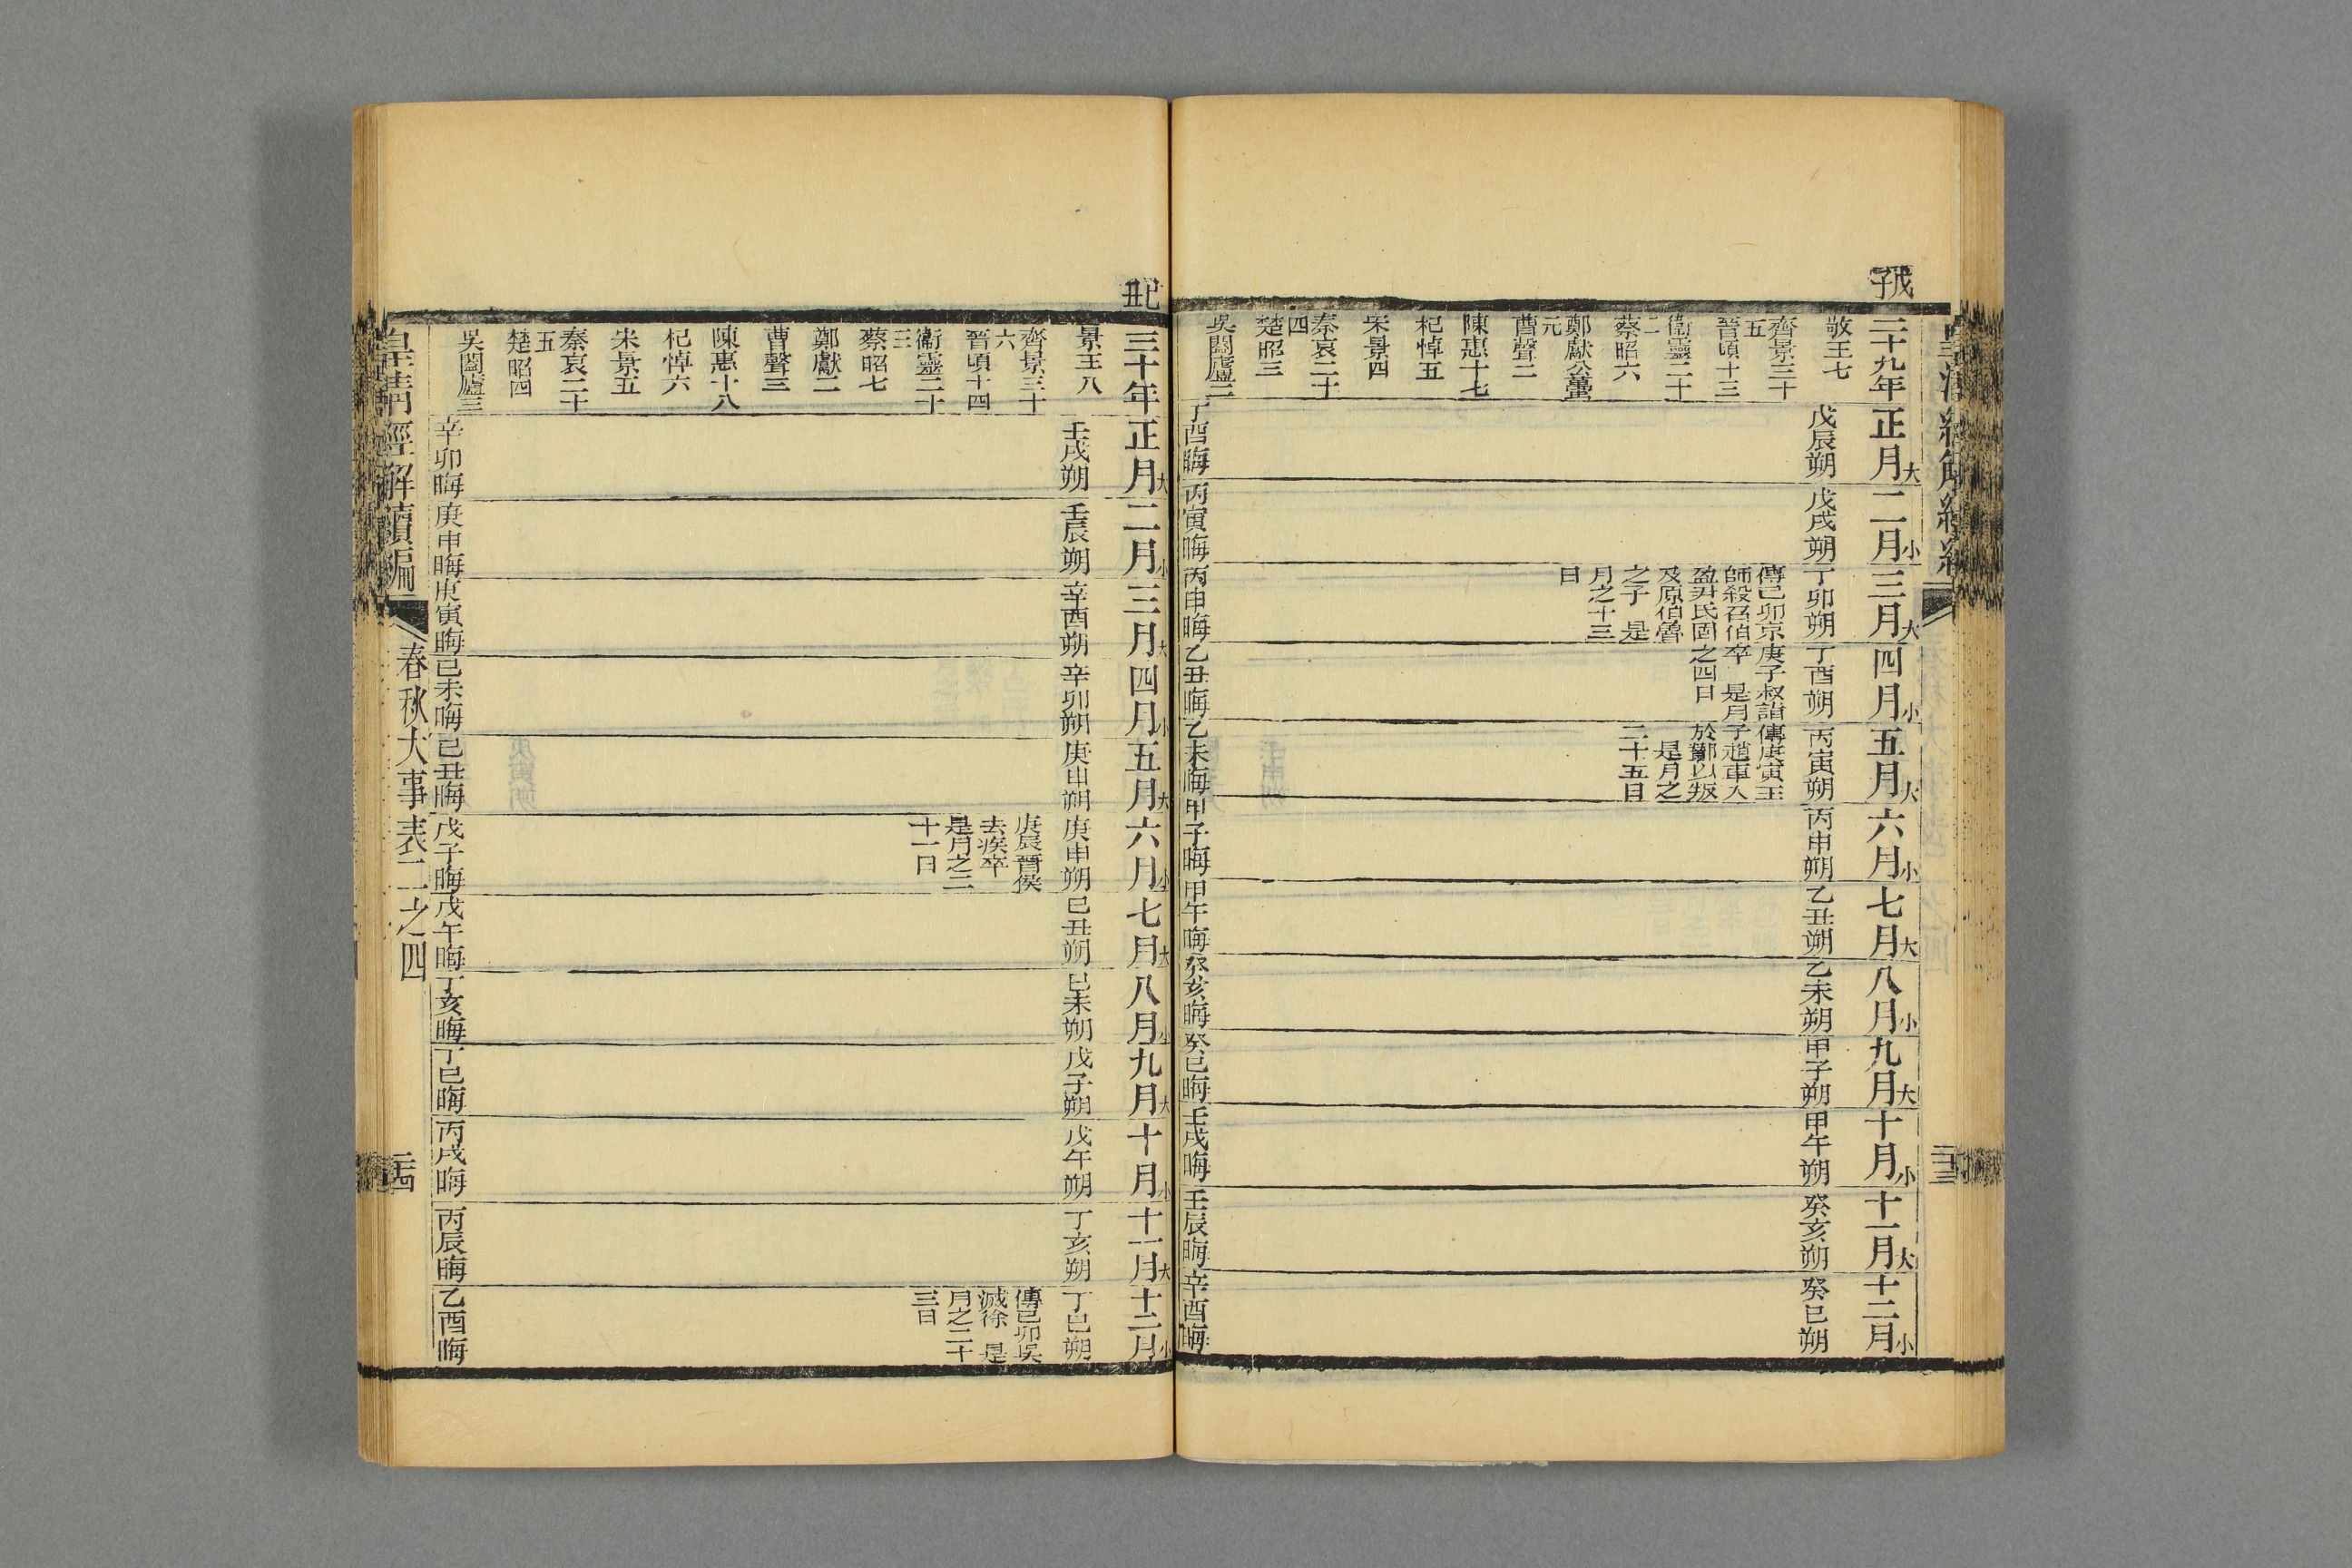 戊子
二十九年
敬王七
齊景三十五
晉頃十三
衞靈二十二
蔡昭六
鄭獻公蠆元
曹聲二
陳惠十七
杞悼五
宋景四
秦哀二十四
楚昭三
吳闔廬二
正月大
戊辰朔
丁酉晦
二月小
戊戌朔
丙寅晦
三月大
丁卯朔
傳己卯京
師殺召伯
盈尹氏固
及原伯魯
之子 是
月之十三
日
丙申晦
四月小
丁酉朔
庚子叔詣
卒 是月
之四日
乙丑晦
五月大
丙寅朔
傳庚寅王
子趙車入
於鄻以叛
是月之
二十五日
乙未晦
六月小
丙申朔
甲子晦
七月大
乙丑朔
甲午晦
八月小
乙未朔
癸亥晦
九月大
甲子朔
癸巳晦
十月小
甲午朔
壬戌晦
十一月大
癸亥朔
壬辰晦
十二月小
癸巳朔
辛酉晦
己丑
三十年
景王八
齊景三十六
晉頃十四
衞靈二十三
蔡昭七
鄭獻二
曹聲三
陳惠十八
杞悼六
宋景五
秦哀二十五
楚昭四
吳闔廬三
正月大
壬戌朔
辛卯晦
二月小
壬辰朔
庚申晦
三月大
辛酉朔
庚寅晦
四月小
辛卯朔
己未晦
五月大
庚申朔
己丑晦
六月小
庚申朔
庚辰晉侯
去疾卒
是月之二
十一日
戊子晦
七月大
己丑朔
戊午晦
八月小
己未朔
丁亥晦
九月大
戊子朔
丁巳晦
十月小
戊午朔
丙戌晦
十一月大
丁亥朔
丙辰晦
十二月小
丁巳朔
傳己卯吳
滅徐 是
月之二十
三日
乙酉晦
皇清經解續編
春秋大事表二之四
二十四